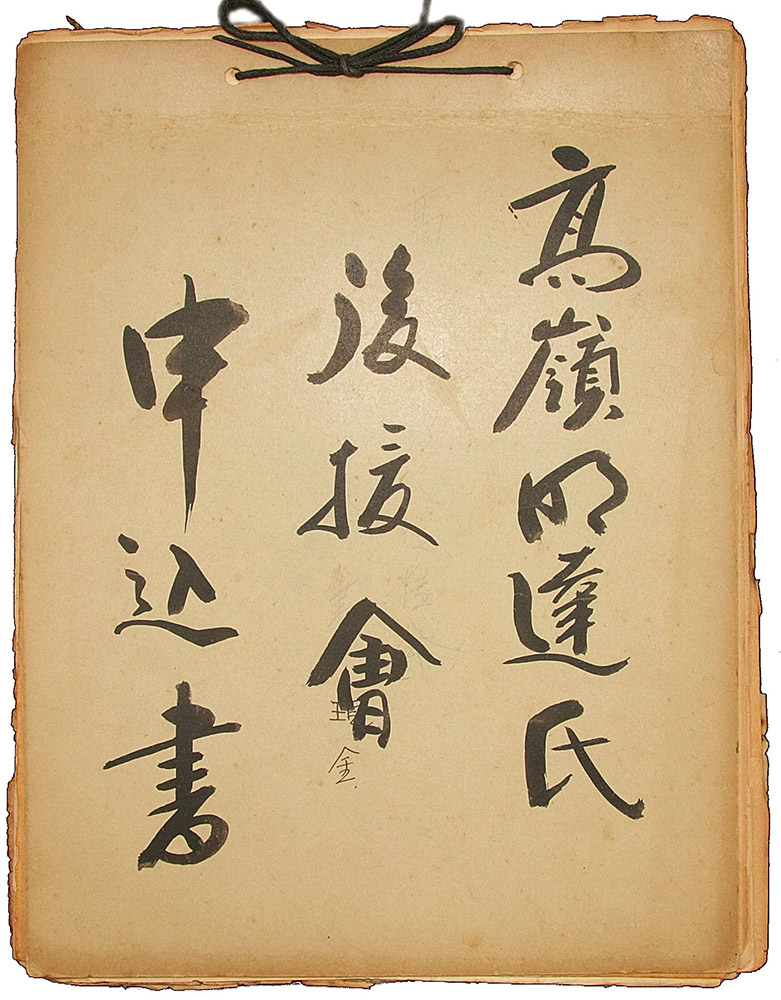 高嶺明達氏
後援會
申込書
金